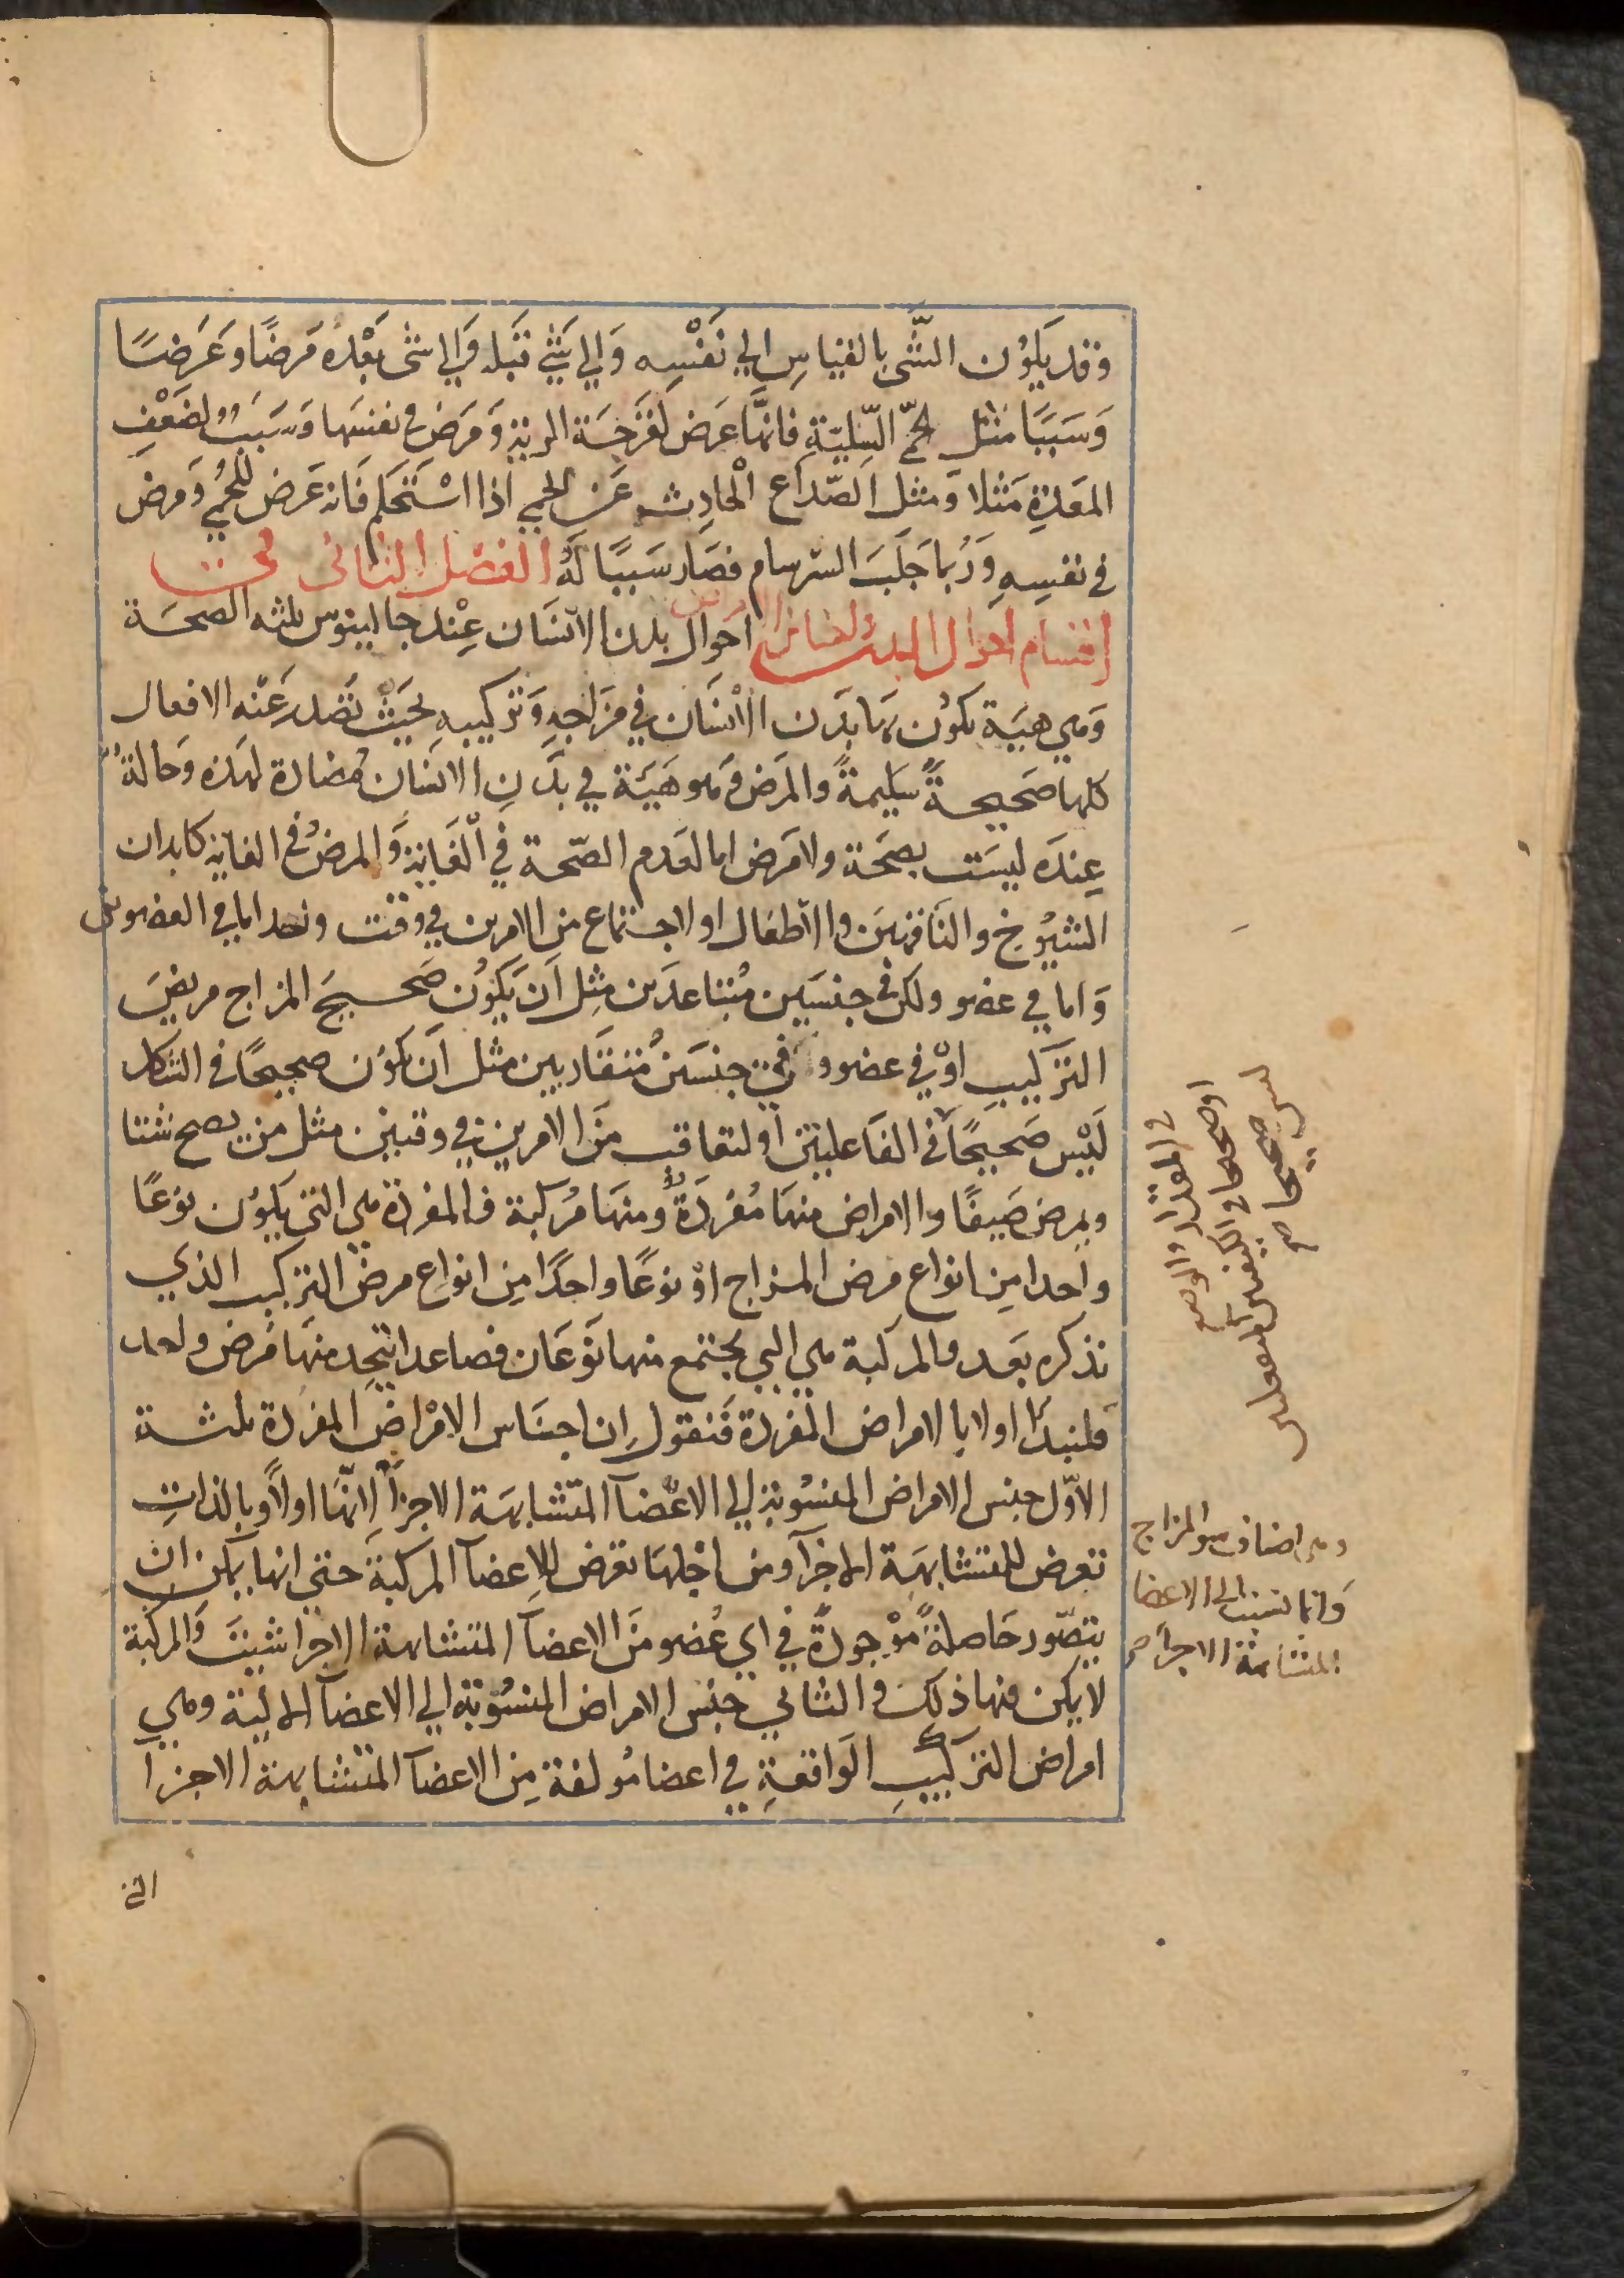 وقد يكون الشى بالقياس الي نَفْسِه وَالي شَيْ قبله وَالي شى بَعْده مَرضًا وعَرَضًا
وَسَبَبًا مثل حمّي السّلِيّةِ فانهّا عَرَض لقَرحَة الرية وَمَرَض في نفسها وَسَبَبٌ لضَعْفِ
المعَدةِ مَثلا وَمثل الصّداع الحادِث عَن الحمي اذا اسْتَحكم فَانه عَرض للحُمي وَمرض
في نفسِهِ وَرُبما جَلَبَ السّرسام فصَار سَببًا لَهُ الفصْل الثاني في
اقسام احوال البدن واجناس الامراض احوال بدن الانسَان عِنْد جالينوس ثلثه الصحَة
وَهي هيَية يكوُن بها بَدَن الانسَان في مزَاجهِ وَتركيبه بحَيث تصْدر عَنْه الافعال
كلها صَحيحةً سَليمةً والمَرَض وَهو هَيَئَة في بَدَنِ الانسَان مُضَادة لهَذه وَحالةٌ
عِندَه ليسَت بصحَة ولا مَرض اما لعَدم الصّحة في الغَاية وَالمرضُ في الغاية كابدان
الشيُوخ والنَاقهيَن والاطفال او لاجتماع من الامرين في وقت واحد اما في العضوين
وَاما في عضو ولكن في جنسَين مُتباعدَين مِثل اَن يكوُن صَحيحَ المزاج مريضَ
التركيبِ اوْ في عضو و في جنسَين مُتقَاربين مثل اَن يكوُن صحيحًا في الشكل
لَيْسَ صَحيحًا في الفَاعليتين او لتعاقب منَ الامرين في وقتين مثل من يصح شتا
ويمرض صَيفًا والامراض منهَا مُفردَةٌ ومنهَا مُركبة فالمفردة هي التي يَكوُن نوَعًا
واحدا مِن انواع مرض المزاج اوْ نوَعًا واحدًا مِن انواع مرض التركيب الذي
نذكره بعَد والمركبة هي التي يجتمع منها نوَعَان فصاعدا يتحِد منهَا مَرض واحد
فلنبدأ اولا بالامراض المفردة فَنقول اِن اجنَاس الامْرَاض المفردة ثلثة
الاوّل جنس الامراض المنسُوبة الي الاعْضآ المتشابهَة الاجزآ لانهَّا اولاً وبالذاتِ
تعرض للمتشابهَة الاجزآ ومن اجْلهَا تعرض للاعضآ المركبة حتي انها يمكن ان
يتصّور حَاصلةً موْجودةً في اي عُضو منَ الاعضآ المتشابهة الاجزا شيتَ وَالمركبة
لا يمكن فيها ذلك والثاني جنس الامراض المنسُوبة الي الاعضآ الالية وهي
امراض التركيبِ الوَاقعَةِ في اعضا مُولفة مِن الاعضآ المتشابهة الاجزا
في المقدار والوضع
او صحيحا في الكيفيتين الفاعلتين
ليس صحيحا صح
وهي اصناف سو المزاج
وَانما نسبت الي الاعضا
المتشابهة الاجزا صح